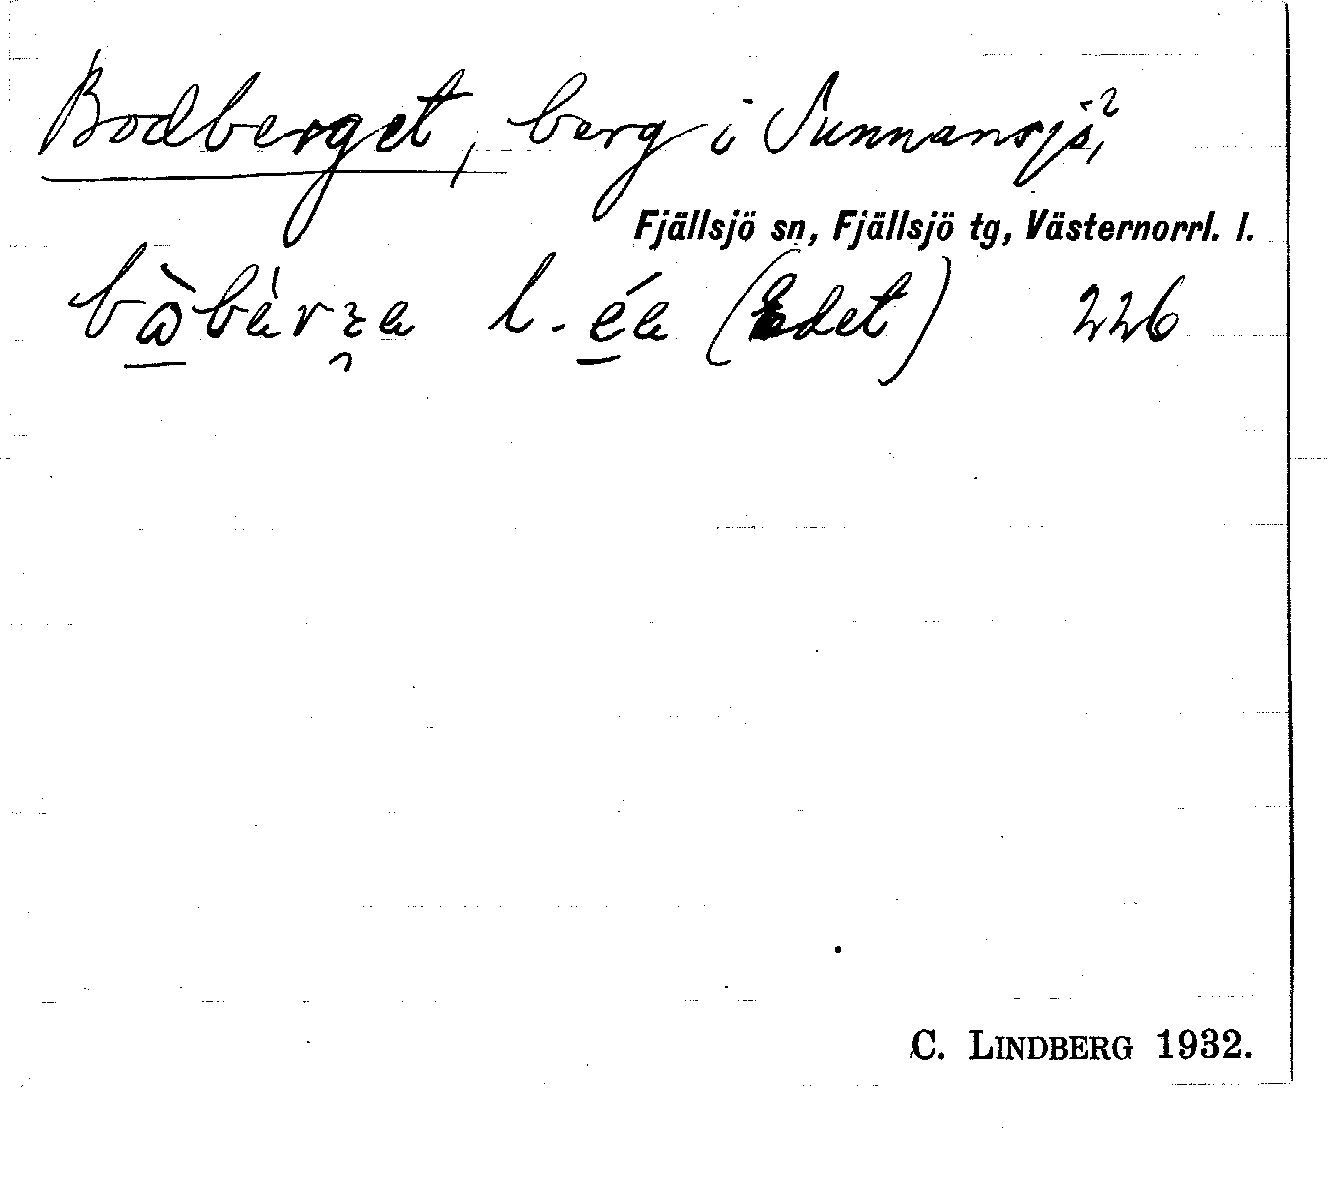 Bodberget, berg i Sunnansjö,²
Fjällsjö sn, Fjällsjö tg, Västernorrl. l.
bὼ̲bárɀ̯a l. -é̲a (Edet) 226
C. LINDBERG 1932.